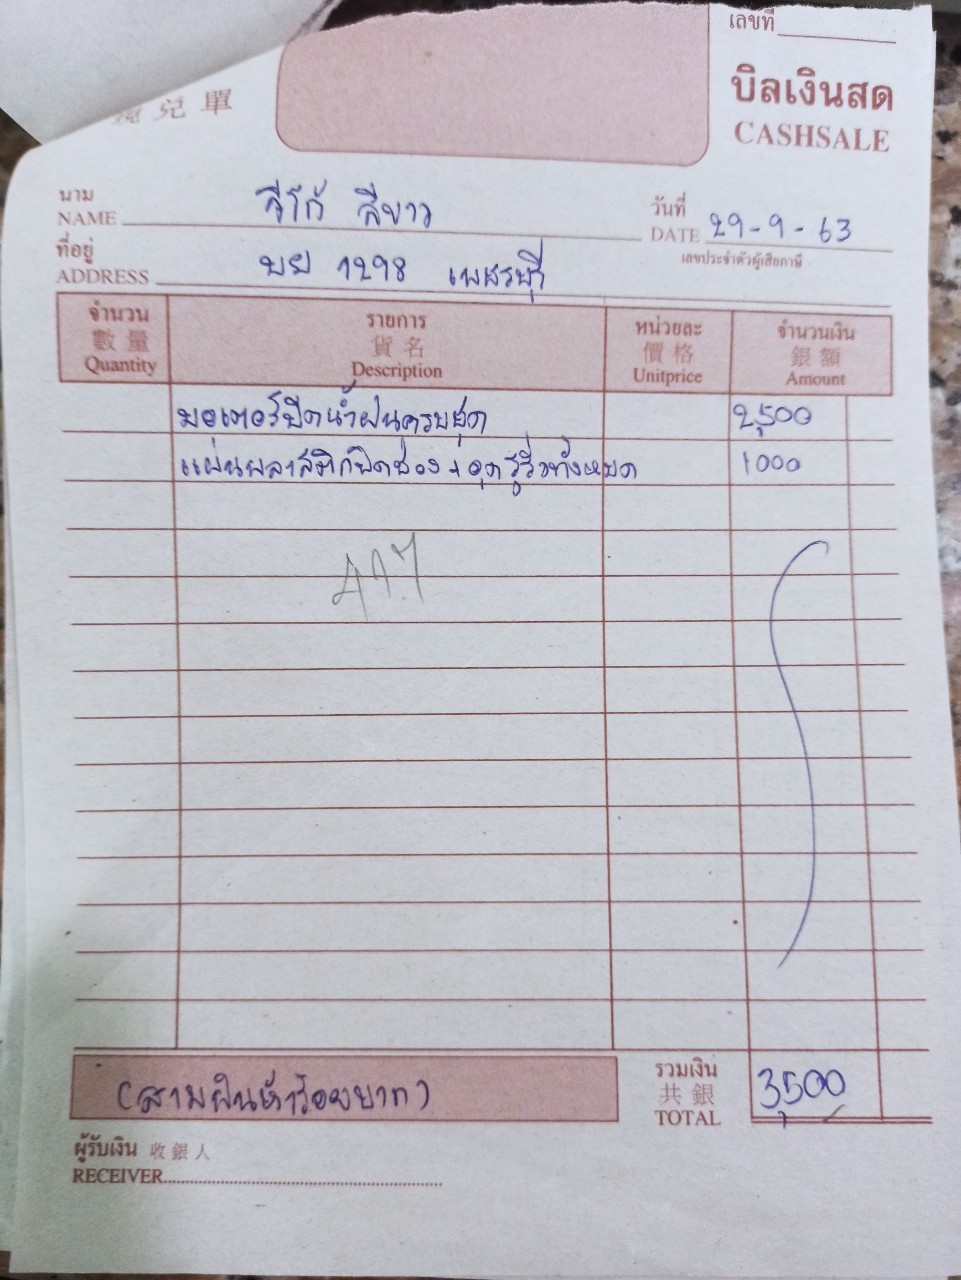 เลขที่
兌單
บิลเงินสด
CASHSALE
นาม
NAME
วีโก้ สีขาว
วันที่
DATE 29-9-63
ที่อยู่
ADDRESS
บย 1298 เพชรบุรี
เลขประจำตัวผู้เสียภาษี
จำนวน รายการ หน่วยละ จำนวนเงิน
數量 貨名 價格 銀額
Quantity Description Unitprice Amount
มอเตอร์ฉีดน้ำฝนครบชุด 2,500
แผ่นพลาสติกปิดช่อง + อุดรูรั่วทั้งหมด 1000
รวมเงิน
共銀
TOTAL
3,500
(สามพันห้าร้อยบาท)
ผู้รับเงิน 收銀人
RECEIVER